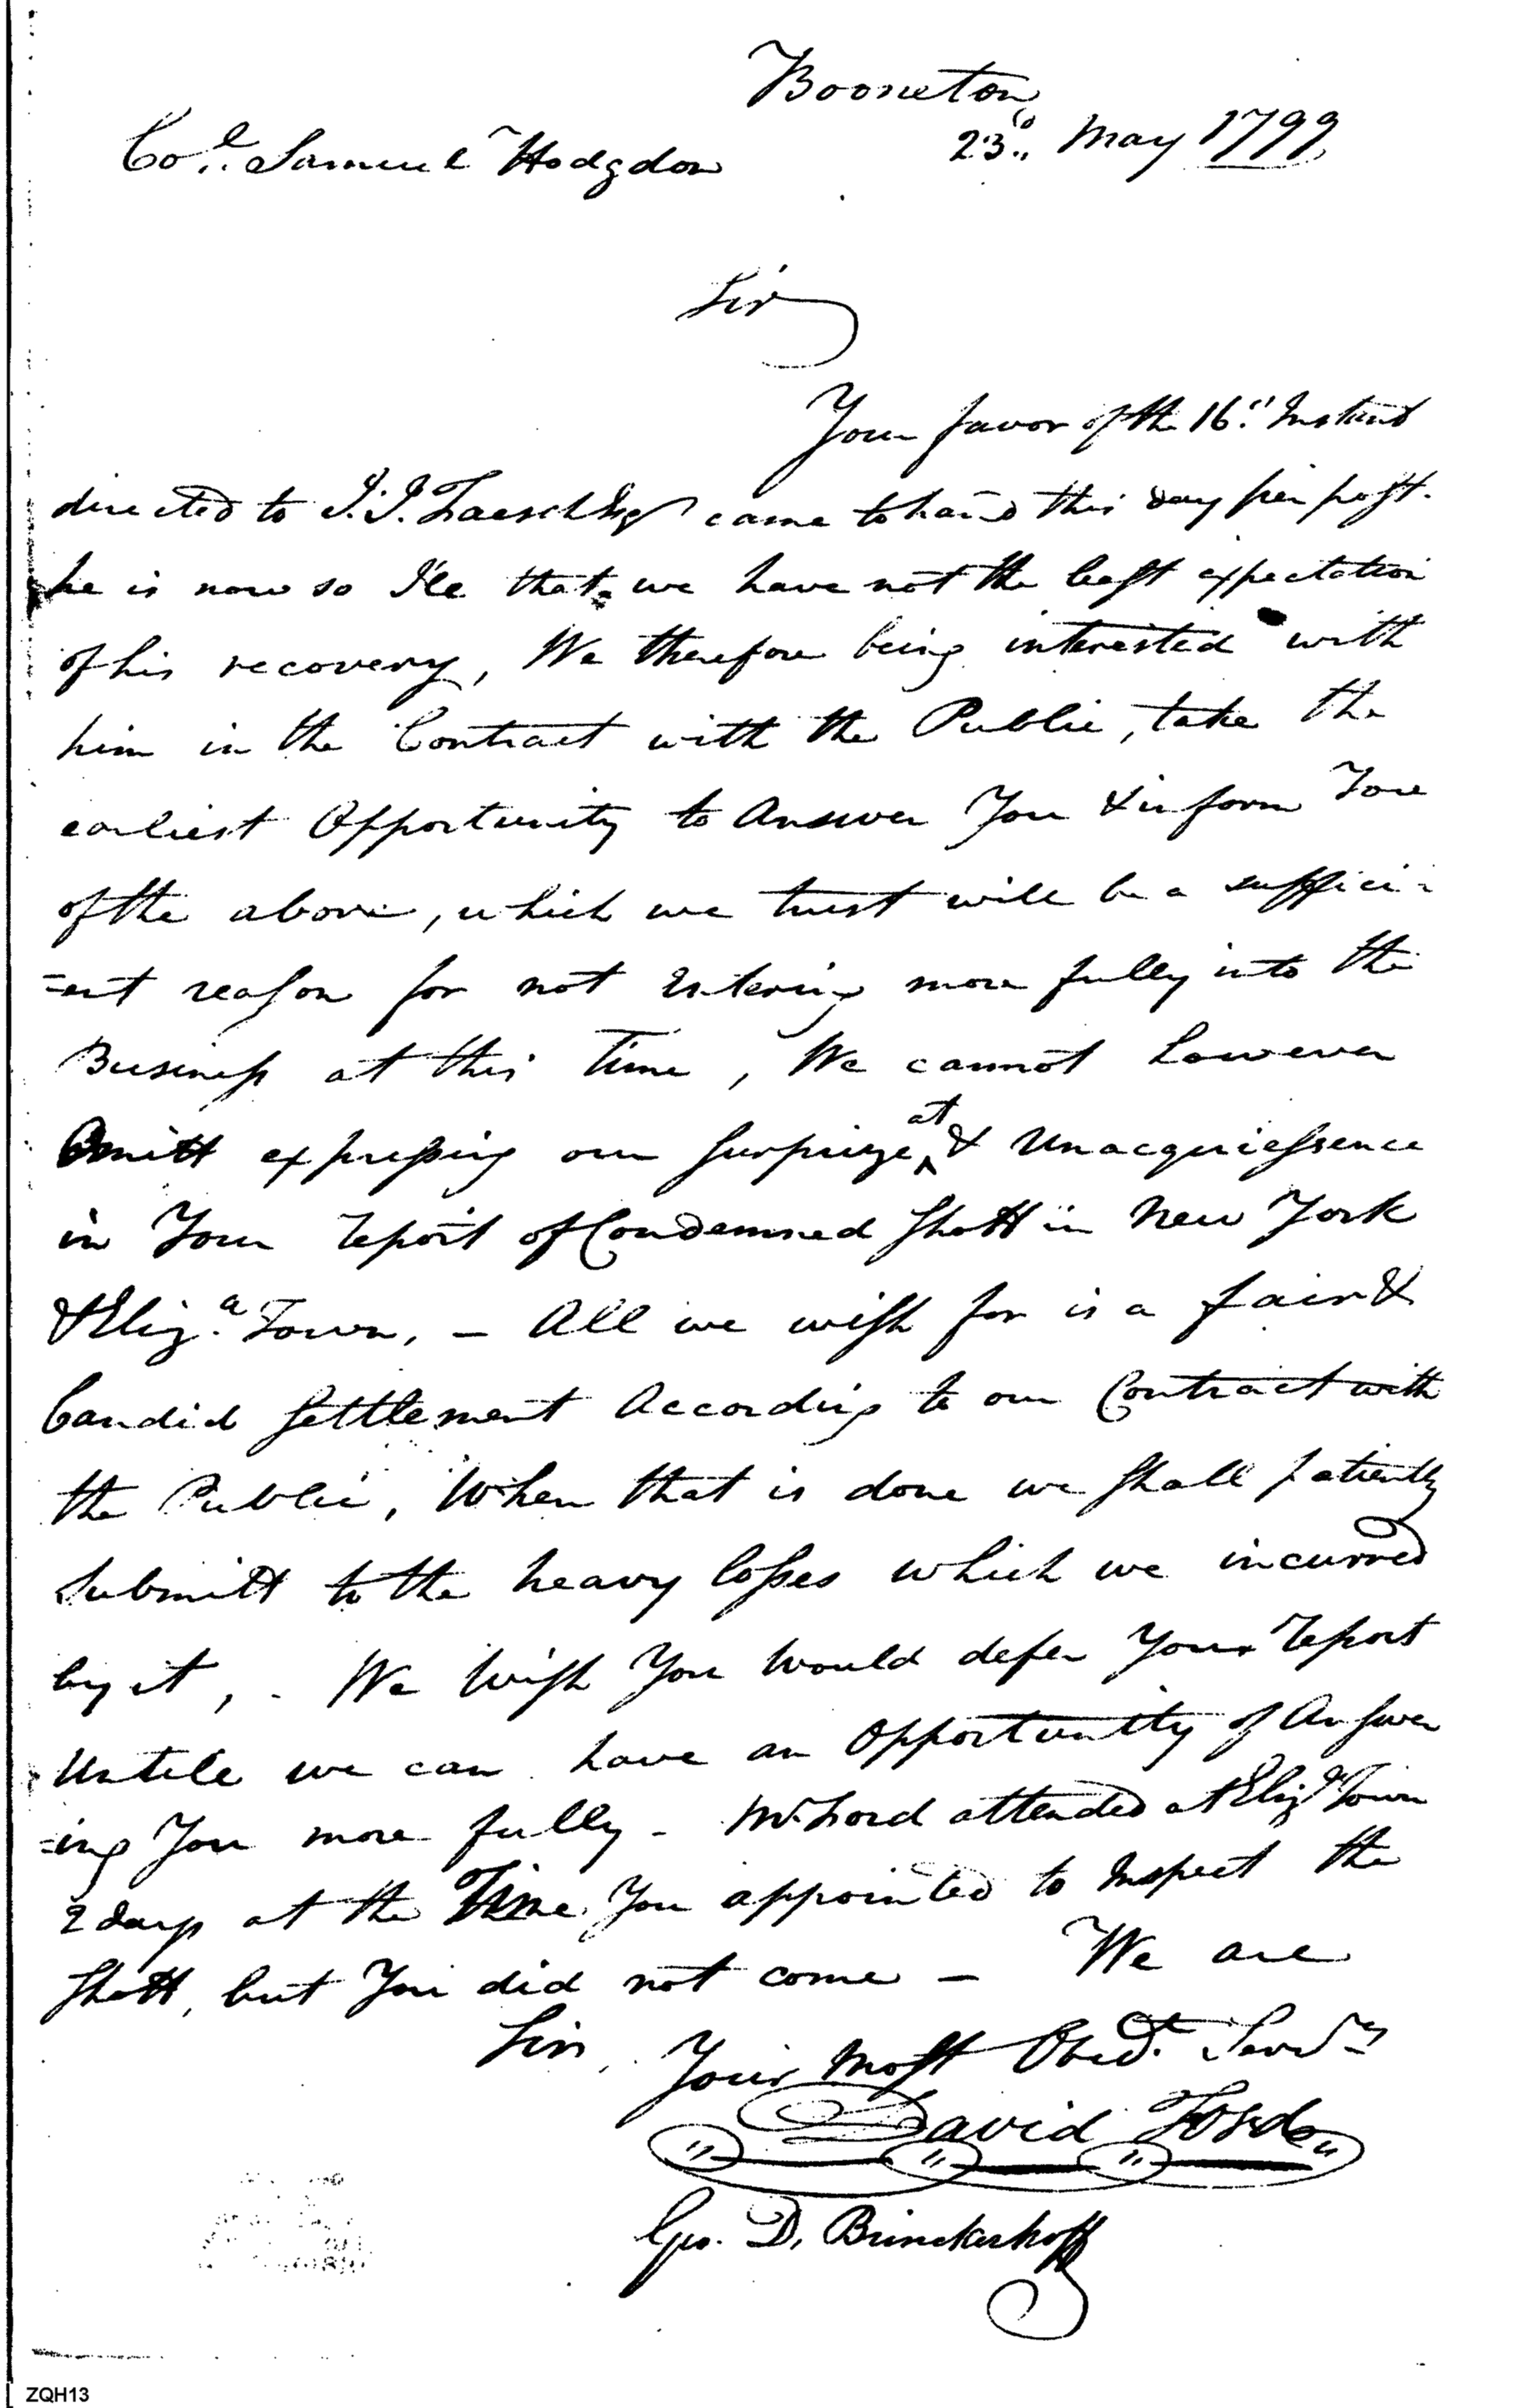 Booneton
23d. May 1799
Col. Samuel Hodgdon
Sir
Your favor of the 16th Instant
directed to J. J. Faesch Esqr came to hand this day per post.
he is now so Ill that we have not the least expectation
of his recovery, We therefore being interested with
him in the Contract with the Public, take the
earliest Opportunity to Answer You & inform You
of the above, which we trust will be a suffici-
=ent reason for not Entering more fully into the
Business at this Time, We cannot however
Omitt expressing our Surprize at & Unacquiessence
in Your report of Condemned Shott in New York
& Eliza. Town, – All we wish for is a fair &
Candid Settlement According to our Contract with
the Public, When that is done we Shall patiently
Submitt to the heavy losses which we incurred
by it, - We Wish You Would defer Your report
Untill we can have an Opportunity of Answer
=ing You more fully - Mr. Ford attended at Eliza Town
2 days at the Time You appointed to Inspect the
Shott, but You did not come – We are
Sir, Your Most Obedt. Servts
David Ford
Geo. D. Brinckerhoff
ZQH13